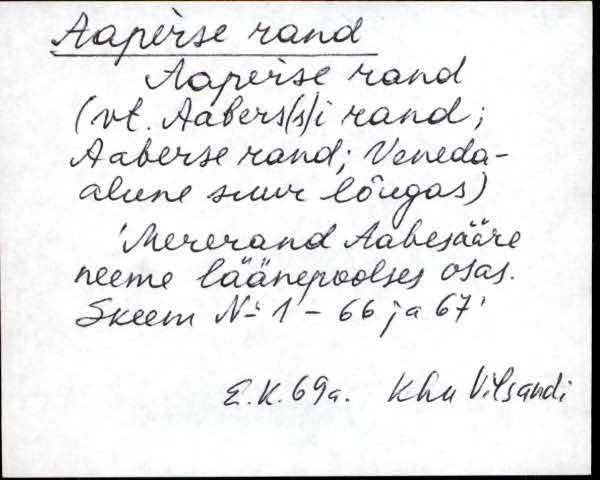 Aaperse rand
Aaperse rand
(vt. Aabers(s)i rand;
Aaberse rand; Veneda-
alune suur lõugas)
'Mererand Aabesääre
neeme läänepoolses osas.
Skeem Nº 1 - 66 ja 67'
E.K. 69a. Khu Vilsandi